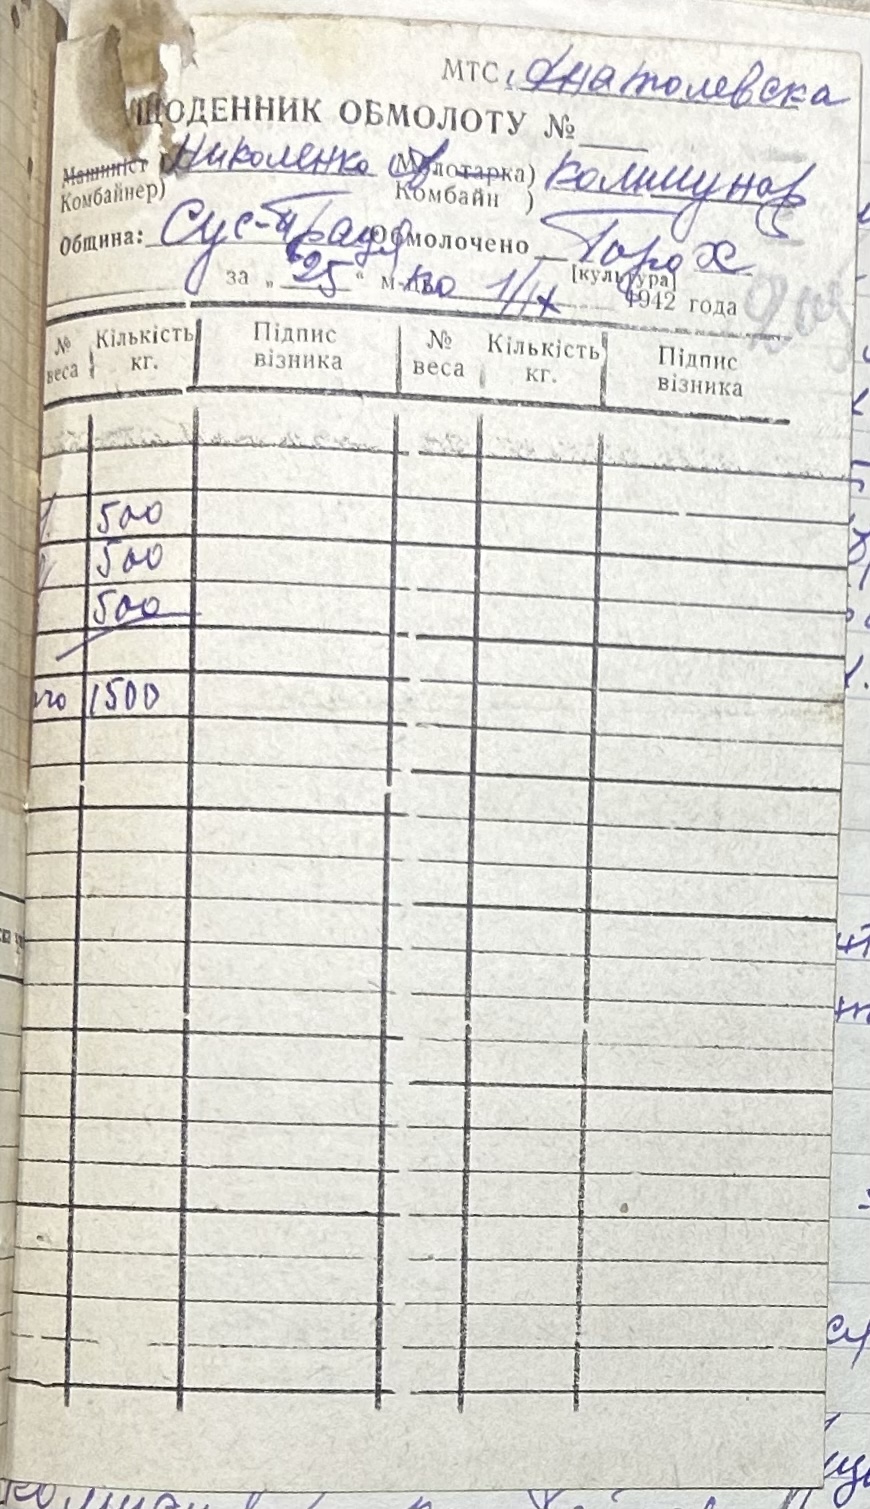 МТС, Анатолевска
ЩОДЕННИК ОБМОЛОТУ №
Машиніст (Николенко (Молотарка) Коммунар
Комбайнер) Комбайн )
Община: Сус-Трада Обмолочено Горох
[культура]
за „25“ м-ць по 1/IX 1942 года
№ веса Кількість кг. Підпис візника № веса Кількість кг. Підпис візника
1. 500
500
500
1500